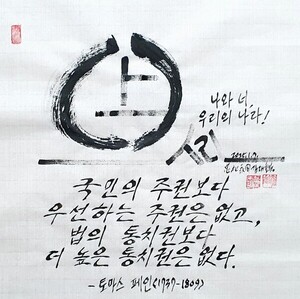 나와 너,
우리의 나라!
국민의 주권보다
우선하는 주권은 없고,
법의 통치권보다
더 높은 통치권은 없다.
- 토마스 페인(1737-1809)